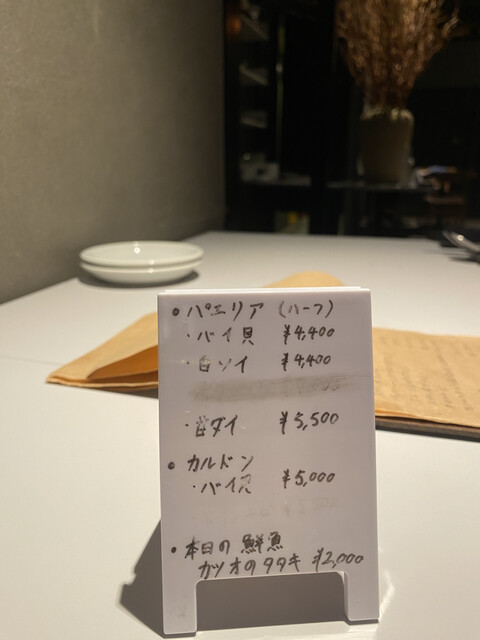 • パエリア (ハーフ)
・バイ貝 ¥4,400
・白ソイ ¥4,400
・甘ダイ ¥5,500
• カルドン
・バイ貝 ¥5,000
• 本日の鮮魚
カツオのタタキ ¥2,000